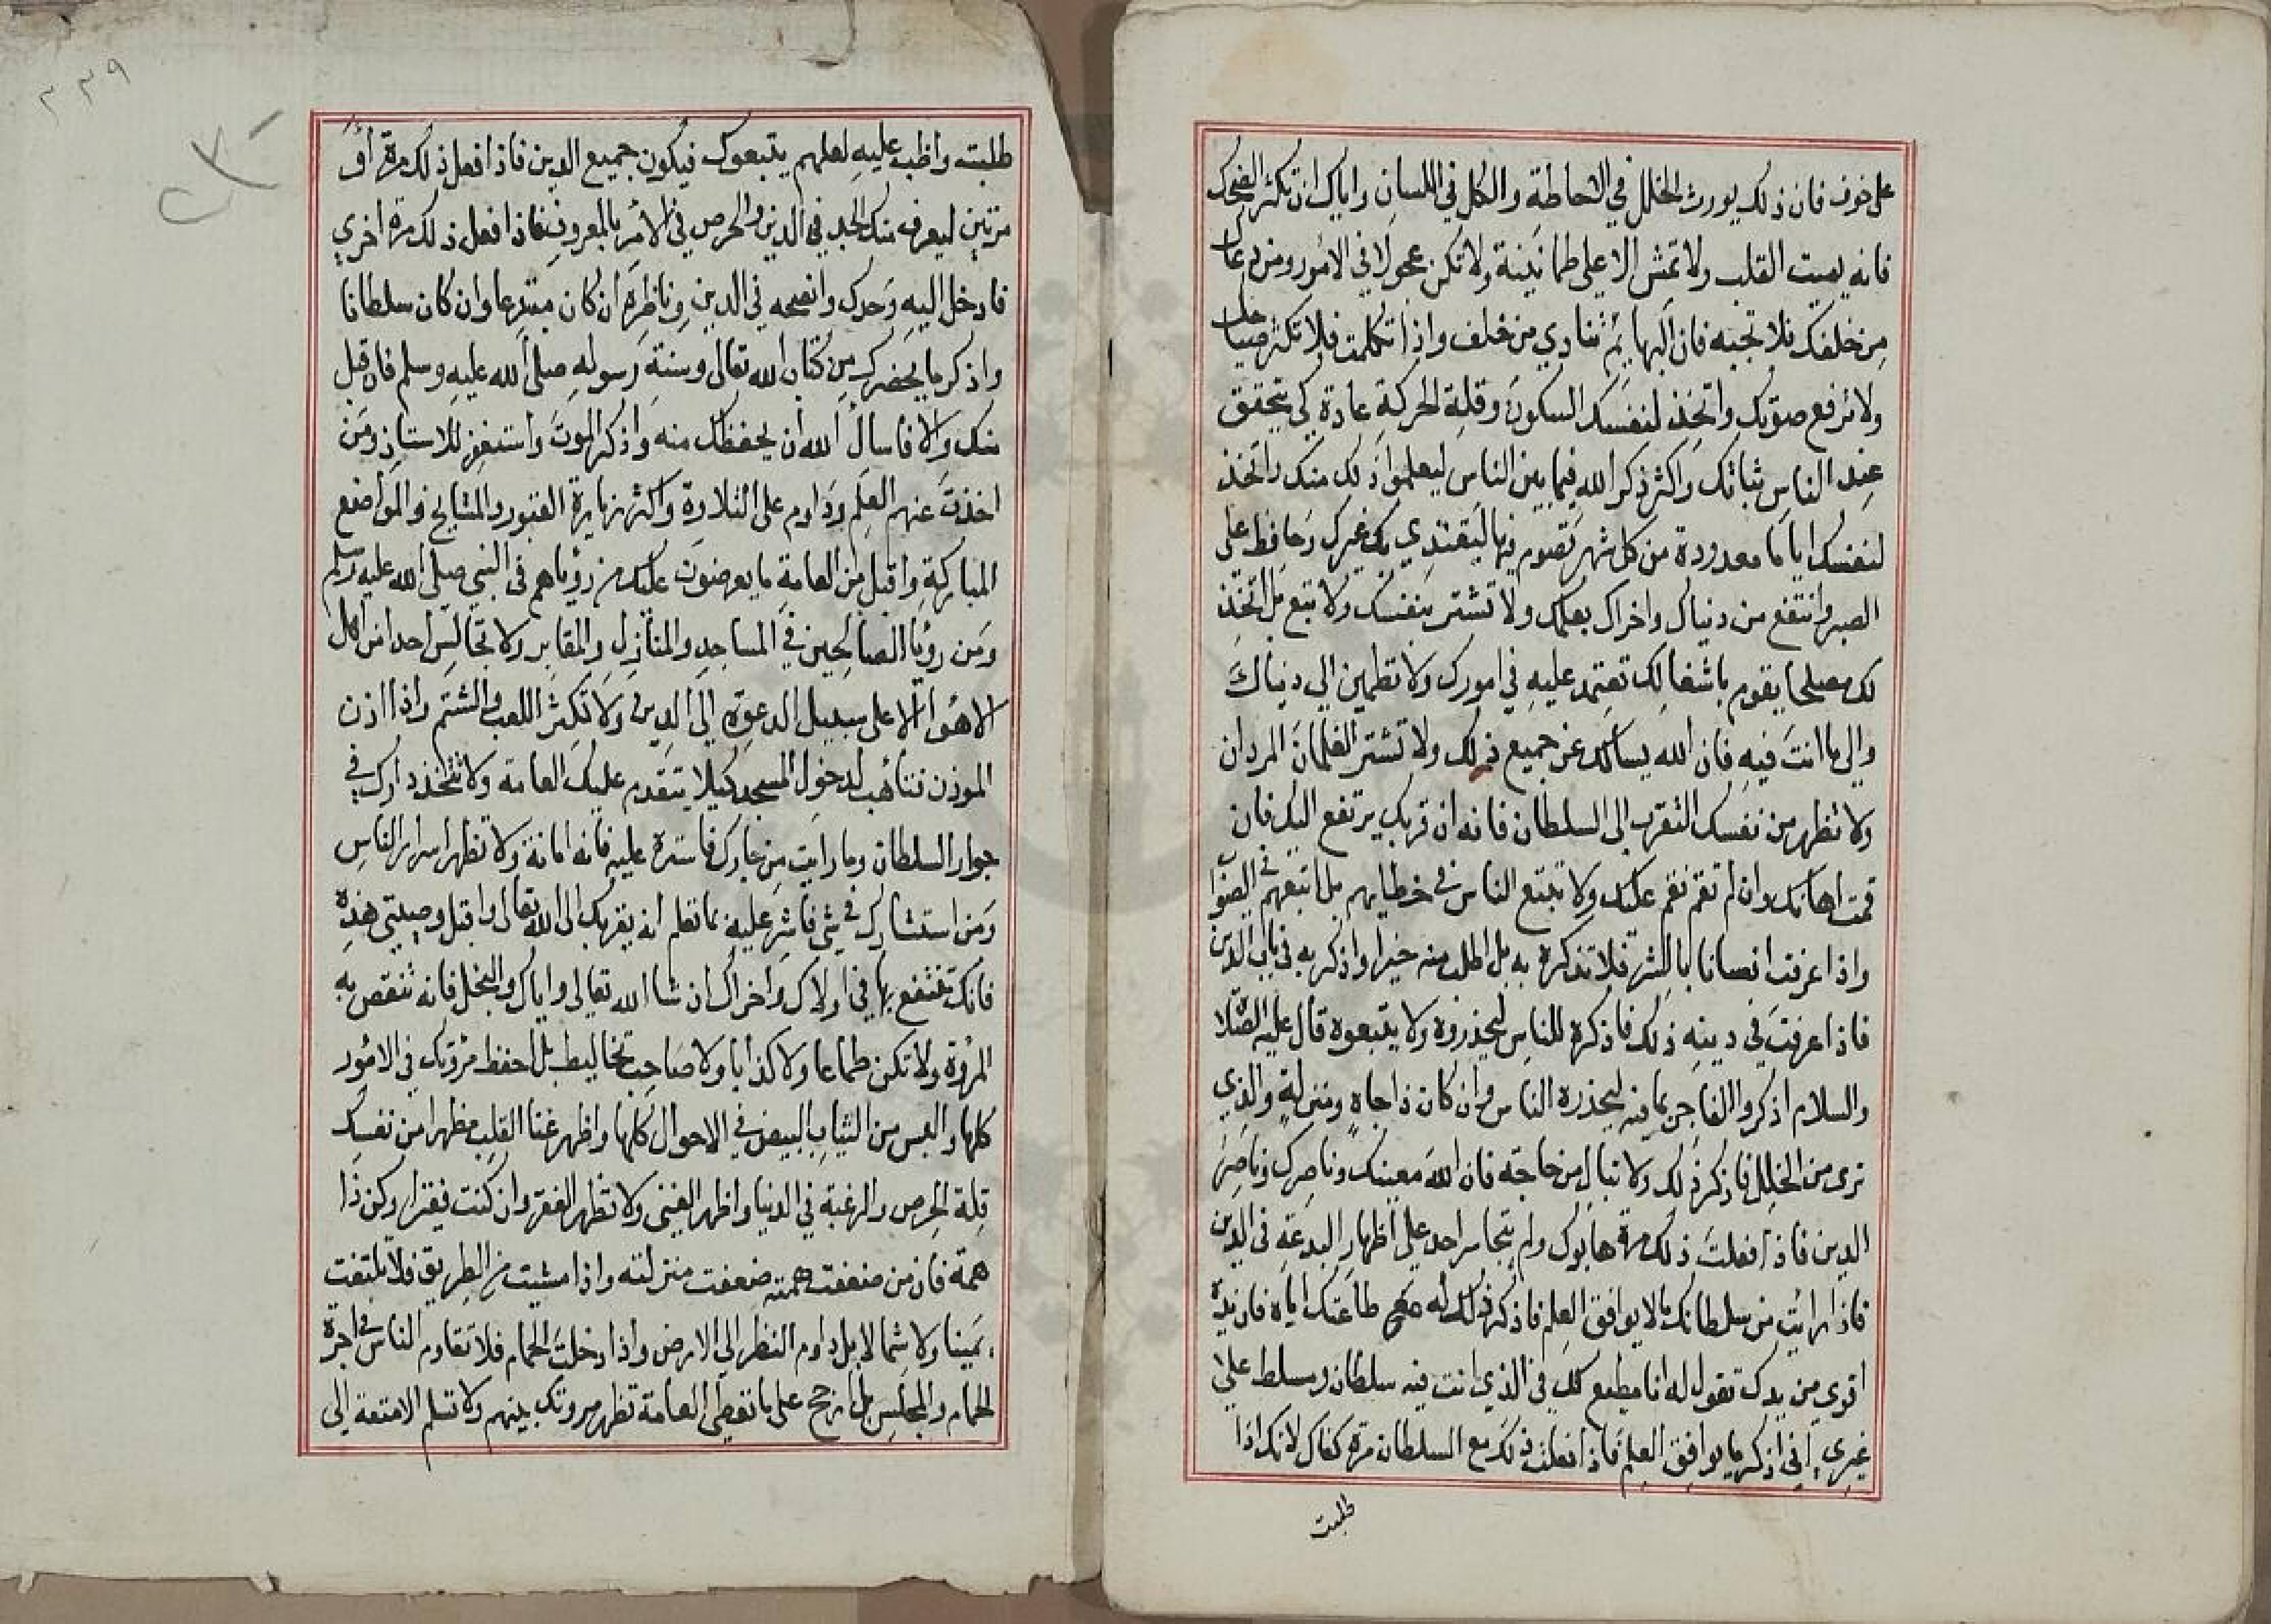 على خوف فان ذلك يورث الخلل في الاحاطة والكل في اللسان واياك ان تكثر الضحك
فانه يميت القلب ولا تمش الا على طمانينة ولا تكن عجولا في الامور ومن دعاك
من خلفك فلا تجبه فان البهايم تنادي من خلف واذا تكلمت فلا تكثر صياحك
ولا ترفع صوتك واتخذ لنفسك السكون وقلة الحركة عادة كي يتحقق
عند الناس ثباتك واكثر ذكر الله فيما بين الناس ليعلموا ذلك منك واتخذ
لنفسك اياما معدودة من كل شهر تصوم فيها ليقتدي بك غيرك وحافظ على
الصبر وانتفع من دنياك واخراك بعلمك ولا تشتر بنفسك ولا تبع بل اتخذ
لك مصلحا يقوم باشغالك تعتمد عليه في امورك ولا تطمين الي دنياك
والي ما انت فيه فان الله يسالك عن جميع ذلك ولا تشتر الغلمان المردان
ولا تظهر من نفسك التقرب الى السلطان فانه ان قربك يرتفع اليك فان
قمت اهانك وان لم تقم نقم عليك ولا تتبع الناس في خطايهم بل اتبعهم في الصواب
واذا عرفت انسانا بالشر فلا تذكره به بل اطلب منه خيرا واذكر به في باب الدين
فاذا عرفت في دينه ذلك فاذكره للناس ليحذروه ولا يتبعوه قال عليه الصلاة
والسلام اذكروا الفاجر بما فيه ليحذره الناس وان كان ذا جاه ومنزلة والذي
ترى من الخلل فاذكر ذلك ولا تبال من حاجته فان الله معينك وناصرك وناصر
الدين فاذا فعلت ذلك مرة هابوك ولم يتجاسر احد على اظهار البدعة في الدين
فاذا رائت من سلطانك ما لا يوافق العلم فاذكر ذلك له مع طاعتك اياه فان يده
اقوي من يدك تقول له انا مطيع لك في الذي انت فيه سلطان ومسلط علي
غيري اني اذكر ما يوافق العلم فاذا فعلت ذلك مع السلطان مرة كفاك لانك اذا
طلبت
٣٣٩
طلبته واظب عليه لعلهم يتبعوك فيكون جميع الدين فاذا فعل ذلك مرة أو
مرتين ليعرف منك الجد في الدين والحرص في الامر بالمعروف فاذا فعل ذلك مرة اخري
فادخل اليه وحدك وانصحه في الدين وناظره ان كان مبتدعا وان كان سلطانا
واذكر ما يحضرك من كتاب الله تعالى وسنة رسوله صلى الله عليه وسلم فان قبل
منك والا فاسال الله ان يحفظك منه واذكر الموت واستغفر للاستاذ ومن
اخذت عنهم العلم وداوم على التلاوة واكثر زيارة القبور والمشايخ والمواضع
المباركة واقبل من العامة ما يعرضون عليك من رؤياهم في النبي صلى الله عليه وسلم
ومن رؤيا الصالحين في المساجد والمنازل والمقابر ولا تجالس احدا من اهل
الاهوا الا على سبيل الدعوة الى الدين ولا تكثر اللعب والشتم واذا اذن
الموذن فتاهب لدخول المسجد كيلا يتقدم عليك العامة ولا تتخذ دارك في
جوار السلطان وما رايت من جارك فاستره عليه فانه امانة ولا تظهر اسرار الناس
ومن استشارك في شي فاشر عليه بما تعلم انه يقربك الى الله تعالى واقبل وصيتي هذه
فانك تنتفع بها في اولاك واخراك ان شا الله تعالى واياك والبخل فانه تنقص به
المروة ولا تكن طماعا ولا كذابا ولا صاحب تخاليط بل احفظ مروتك في الامور
كلها والبس من الثياب البيض في الاحوال كلها واظهر غنا القلب مظهرا من نفسك
قلة الحرص والرغبة في الدنيا واظهر الغنى ولا تظهر الفقر وان كنت فقيرا وكن ذا
همة فان من ضعفت همته ضعفت منزلته واذا مشيت في الطريق فلا تلتفت
يمينا ولا شمالا بل داوم النظر الي الارض واذا دخلت الحمام فلا تقاوم الناس في اجرة
الحمام والمجلس بل ارجح على ما تعطي العامة تظهر مروتك بينهم ولا تسلم الامتعة الى